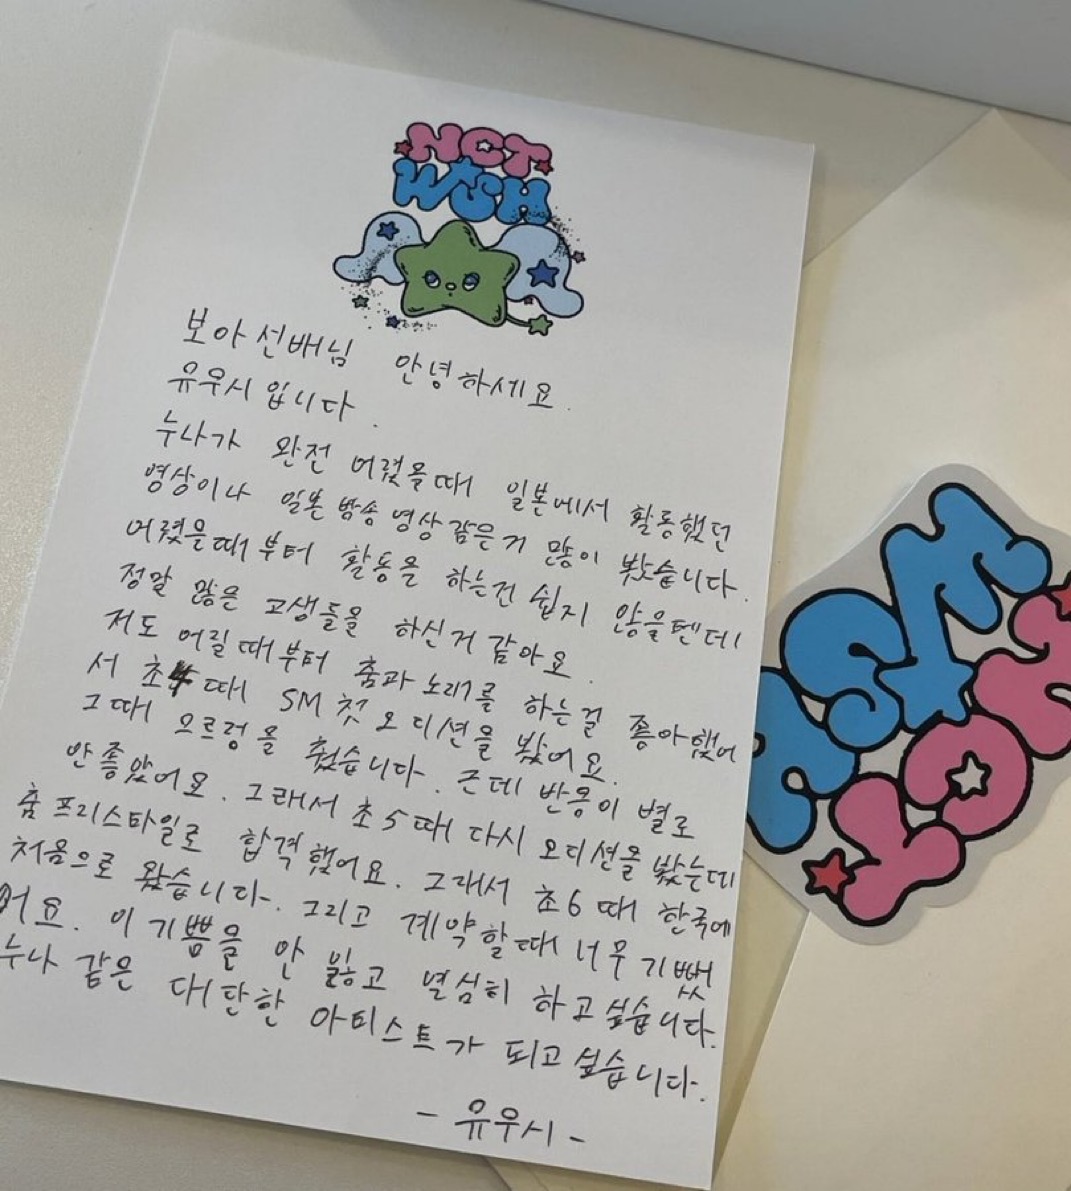 NCT
WISH
보아선배님 안녕하세요.
유우시입니다.
누나가 완전 어렸을때 일본에서 활동했던
영상이나 일본 방송 영상 같은거 많이 봤습니다.
어렸을때부터 활동을 하는건 쉽지 않을텐데
정말 많은 고생들을 하신거 같아요.
저도 어릴때부터 춤과 노래를 하는걸 좋아했어
서 초4 때 SM 첫 오디션을 봤어요.
그때 으르렁을 췄습니다. 근데 반응이 별로
안좋았어요. 그래서 초5때 다시 오디션을 봤는데
춤 프리스타일로 합격했어요. 그래서 초6 때 한국에
처음으로 왔습니다. 그리고 계약할때 너무 기뻤
어요. 이 기쁨을 안 잃고 열심히 하고싶습니다.
누나 같은 대단한 아티스트가 되고 싶습니다.
- 유우시 -
NCT
WISH